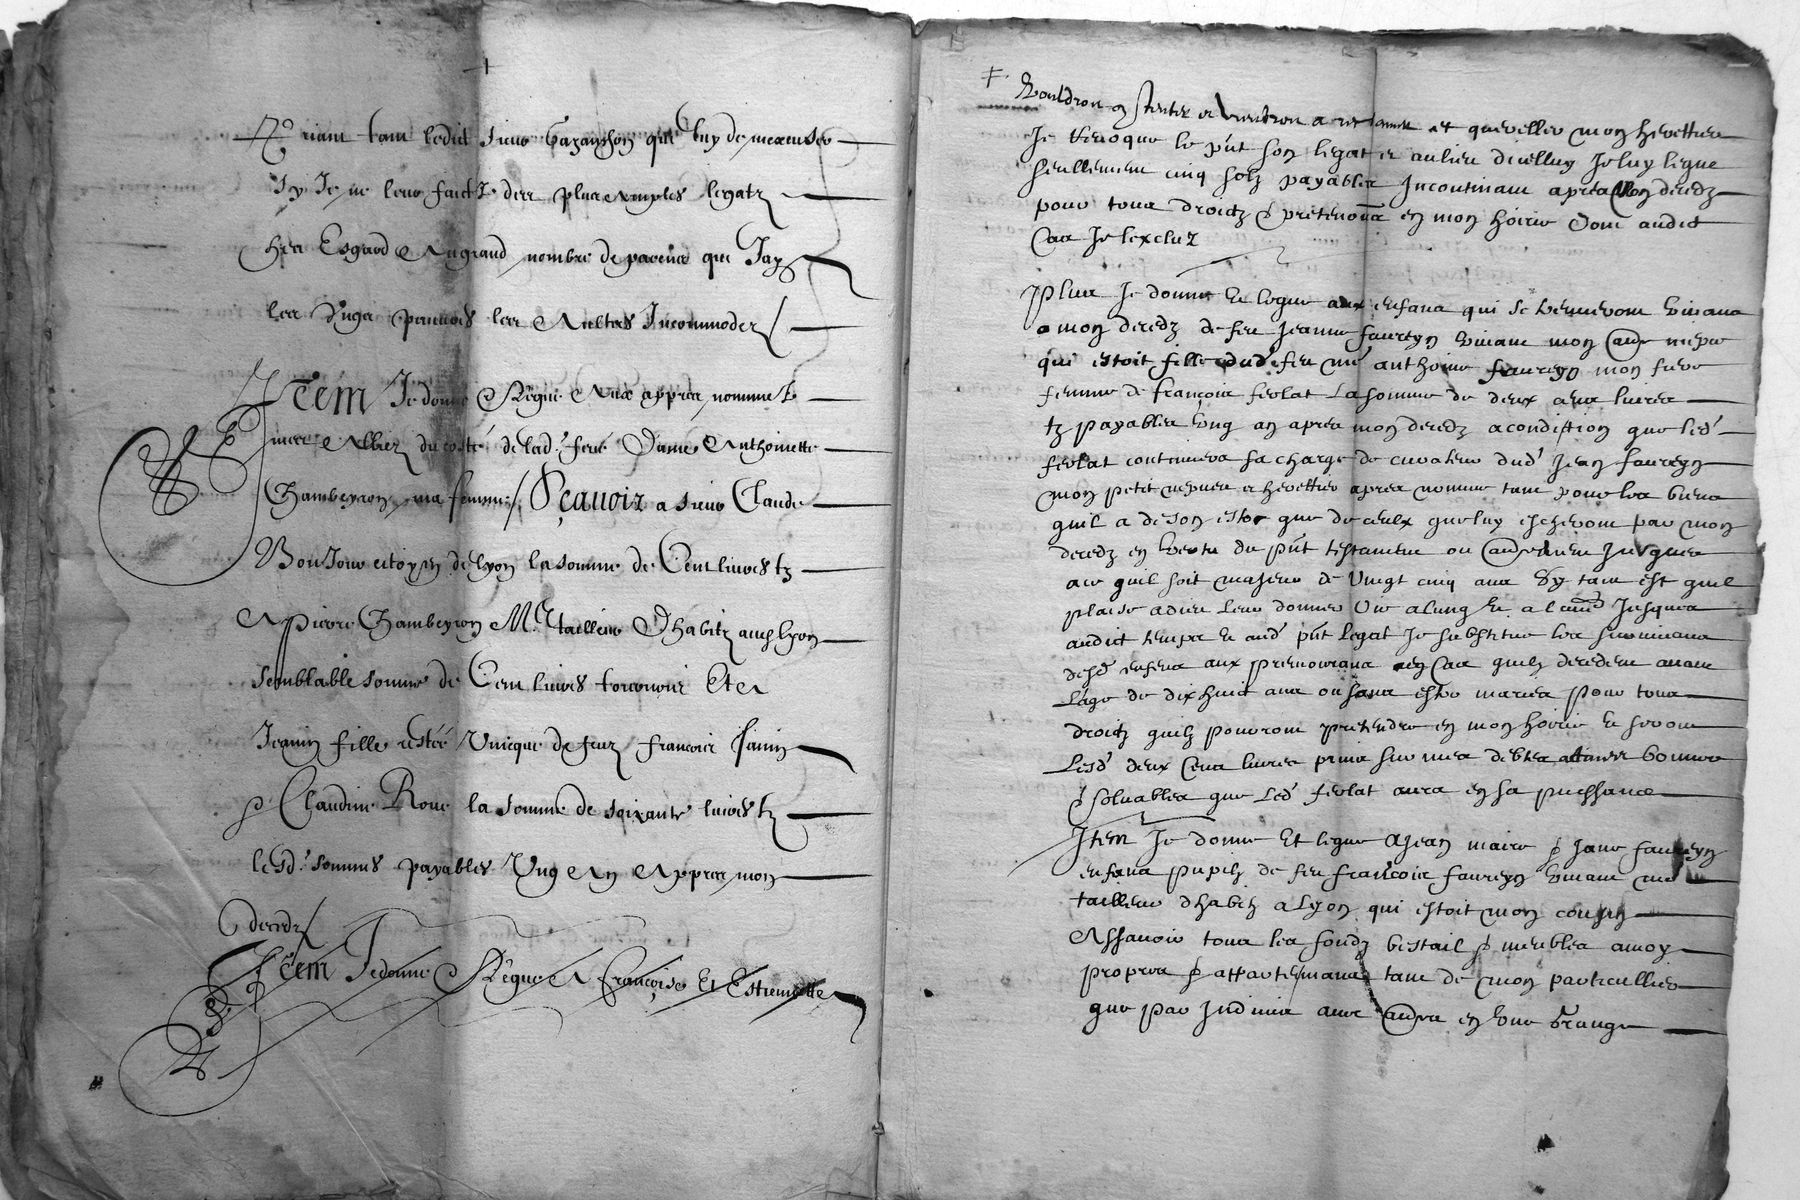 priant tant ledict sieur que luy de mexcuser
sy Je ne leur faictz des plus amples legatz
heu Esgard Au grand nombre de parens que Jay
les Ungs pauvres les Aultres Incommodez
Item Je donne & lègue Aux appres nommez
mes Alliez du costé de lad' feue Dame Anthoinette
Chambeyron ma femme / Sçavoir a sieur Claude
Bonjour citoyen de lyon la somme de Cent livres tz
A pierre Chambeyron Me tailleur Dhabitz aud lyon
semblable somme de Cent livres tournois Et a
Jeanin fille restée Unicque de feuz francois Janin
& Claudine Roue la somme de soixante livres tz
lesd' sommes payables Ung An Appres mon
decedz
Item Je donne & lègue A françoise Et Estiennette
et quereller mon herettier
Je revoque le pnt son legat et au lieu dicelluy Je luy legue
seullement cinq solz payables Incontinant apres mon decedz
pour tous droictz & pretentions en mon hoirie dont audict
cas Je lexclus
Plus Je donne et legue aux enfans qui se trouveront vivans
a mon decedz de feu Jeanne faureyn vivant mon niepce
qui estoit fille dud' feu me anthoine faureyn mon frere
femme de françois ferlat la somme de deux cens livres
tz payables ung an apres mon decedz a condiction que led'
ferlat continuera sa charge de curateur dud' Jean faureyn
mon petit nepveu et herettier apres nomme tant pour les biens
quil a de son estoc que de ceulx que luy escherront par mon
decedz en vertu du pnt testament ou Jusques
a ce quil soit majeur de vingt cinq ans sy tant est quil
plaise a dieu leur donner vie a lung et a laultre Jusques
audict temps et aud' pnt legat Je substitue les survivans
desd' enfans aux premourans en cas quilz decedent avant
laage de dix huict ans ou sans estre mariés pour tous
droictz quilz pourront pretendre en mon hoirie et seront
lesd' deux cens livres prins sur mes debtes bonnes
& solvables que led' ferlat aura en sa puissance
Item Je donne Et legue A Jean maire & Jane faureyn
enfans pupilz de feu françois faureyn vivant me
tailleur dhabitz a Lyon qui estoit mon cousin
Assavoir tous les fondz bestail & meubles a moy
propres & appartenans tant de mon particullier
que par Indivis avec en une grange